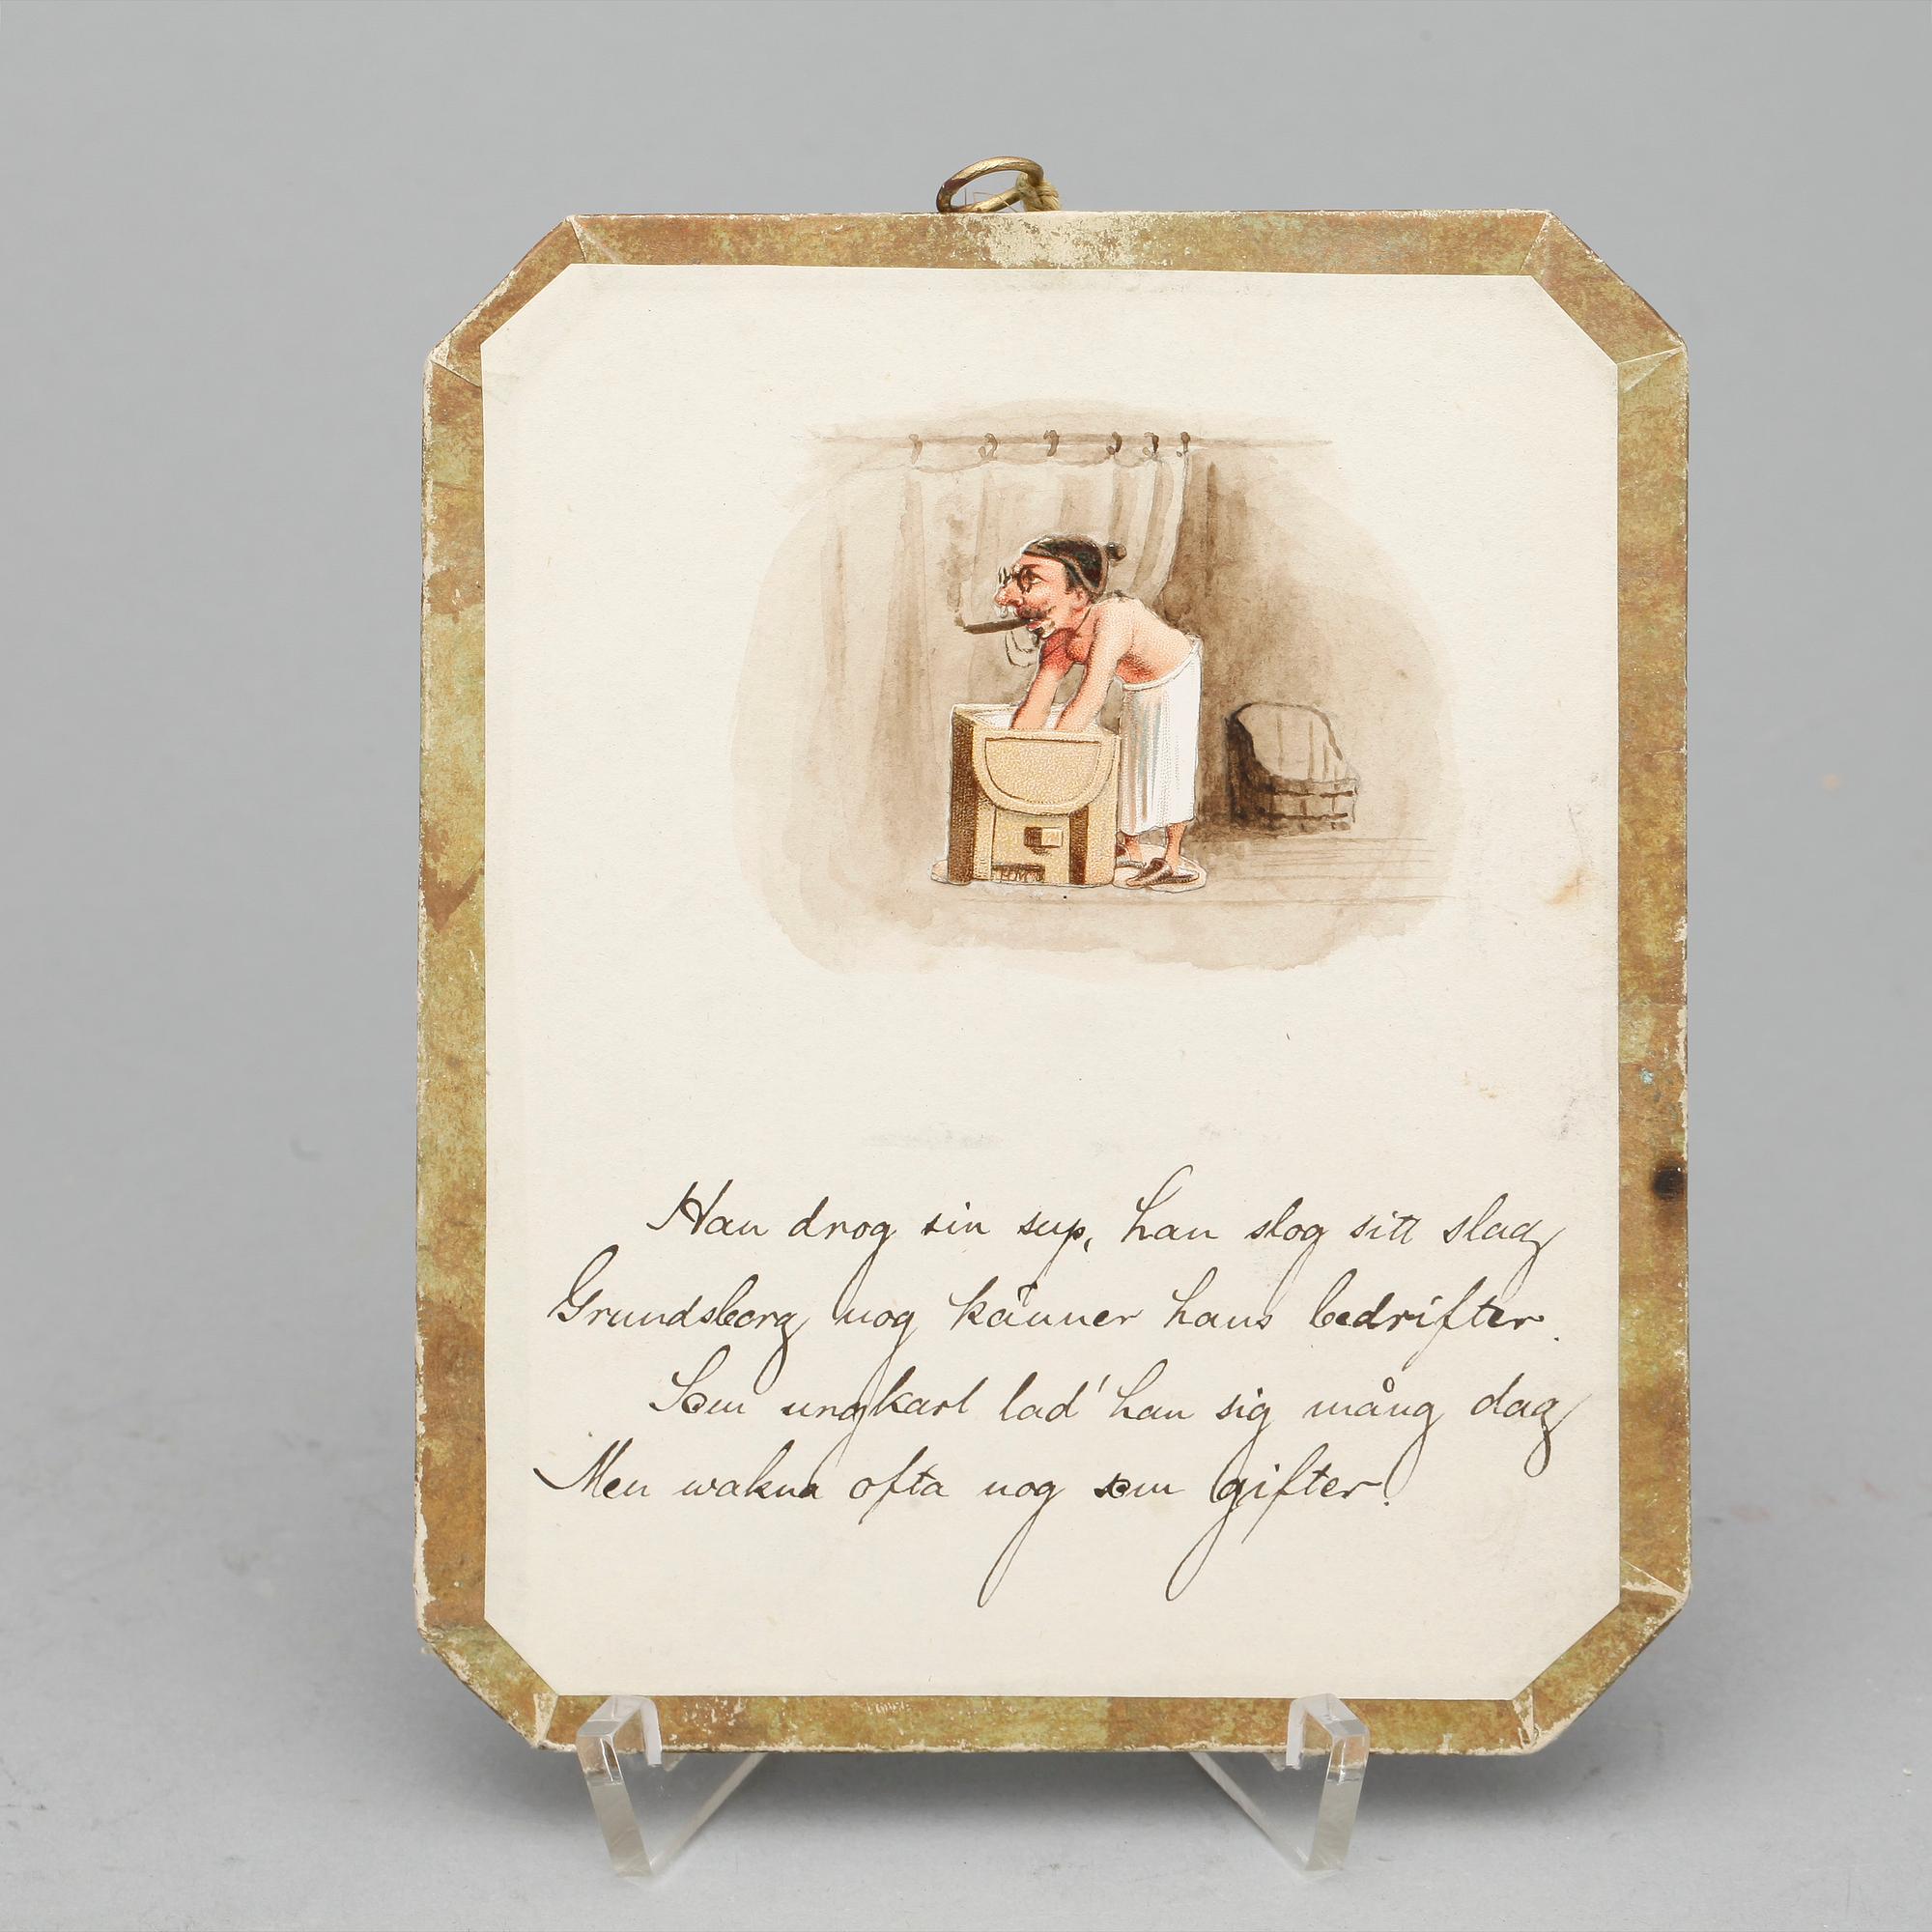 Han drog sin sup, han slog sitt slag
Grundsberg nog känner hans bedrifter.
Som ungkarl lad' han sig mång dag
Men wakna ofta nog som gifter.